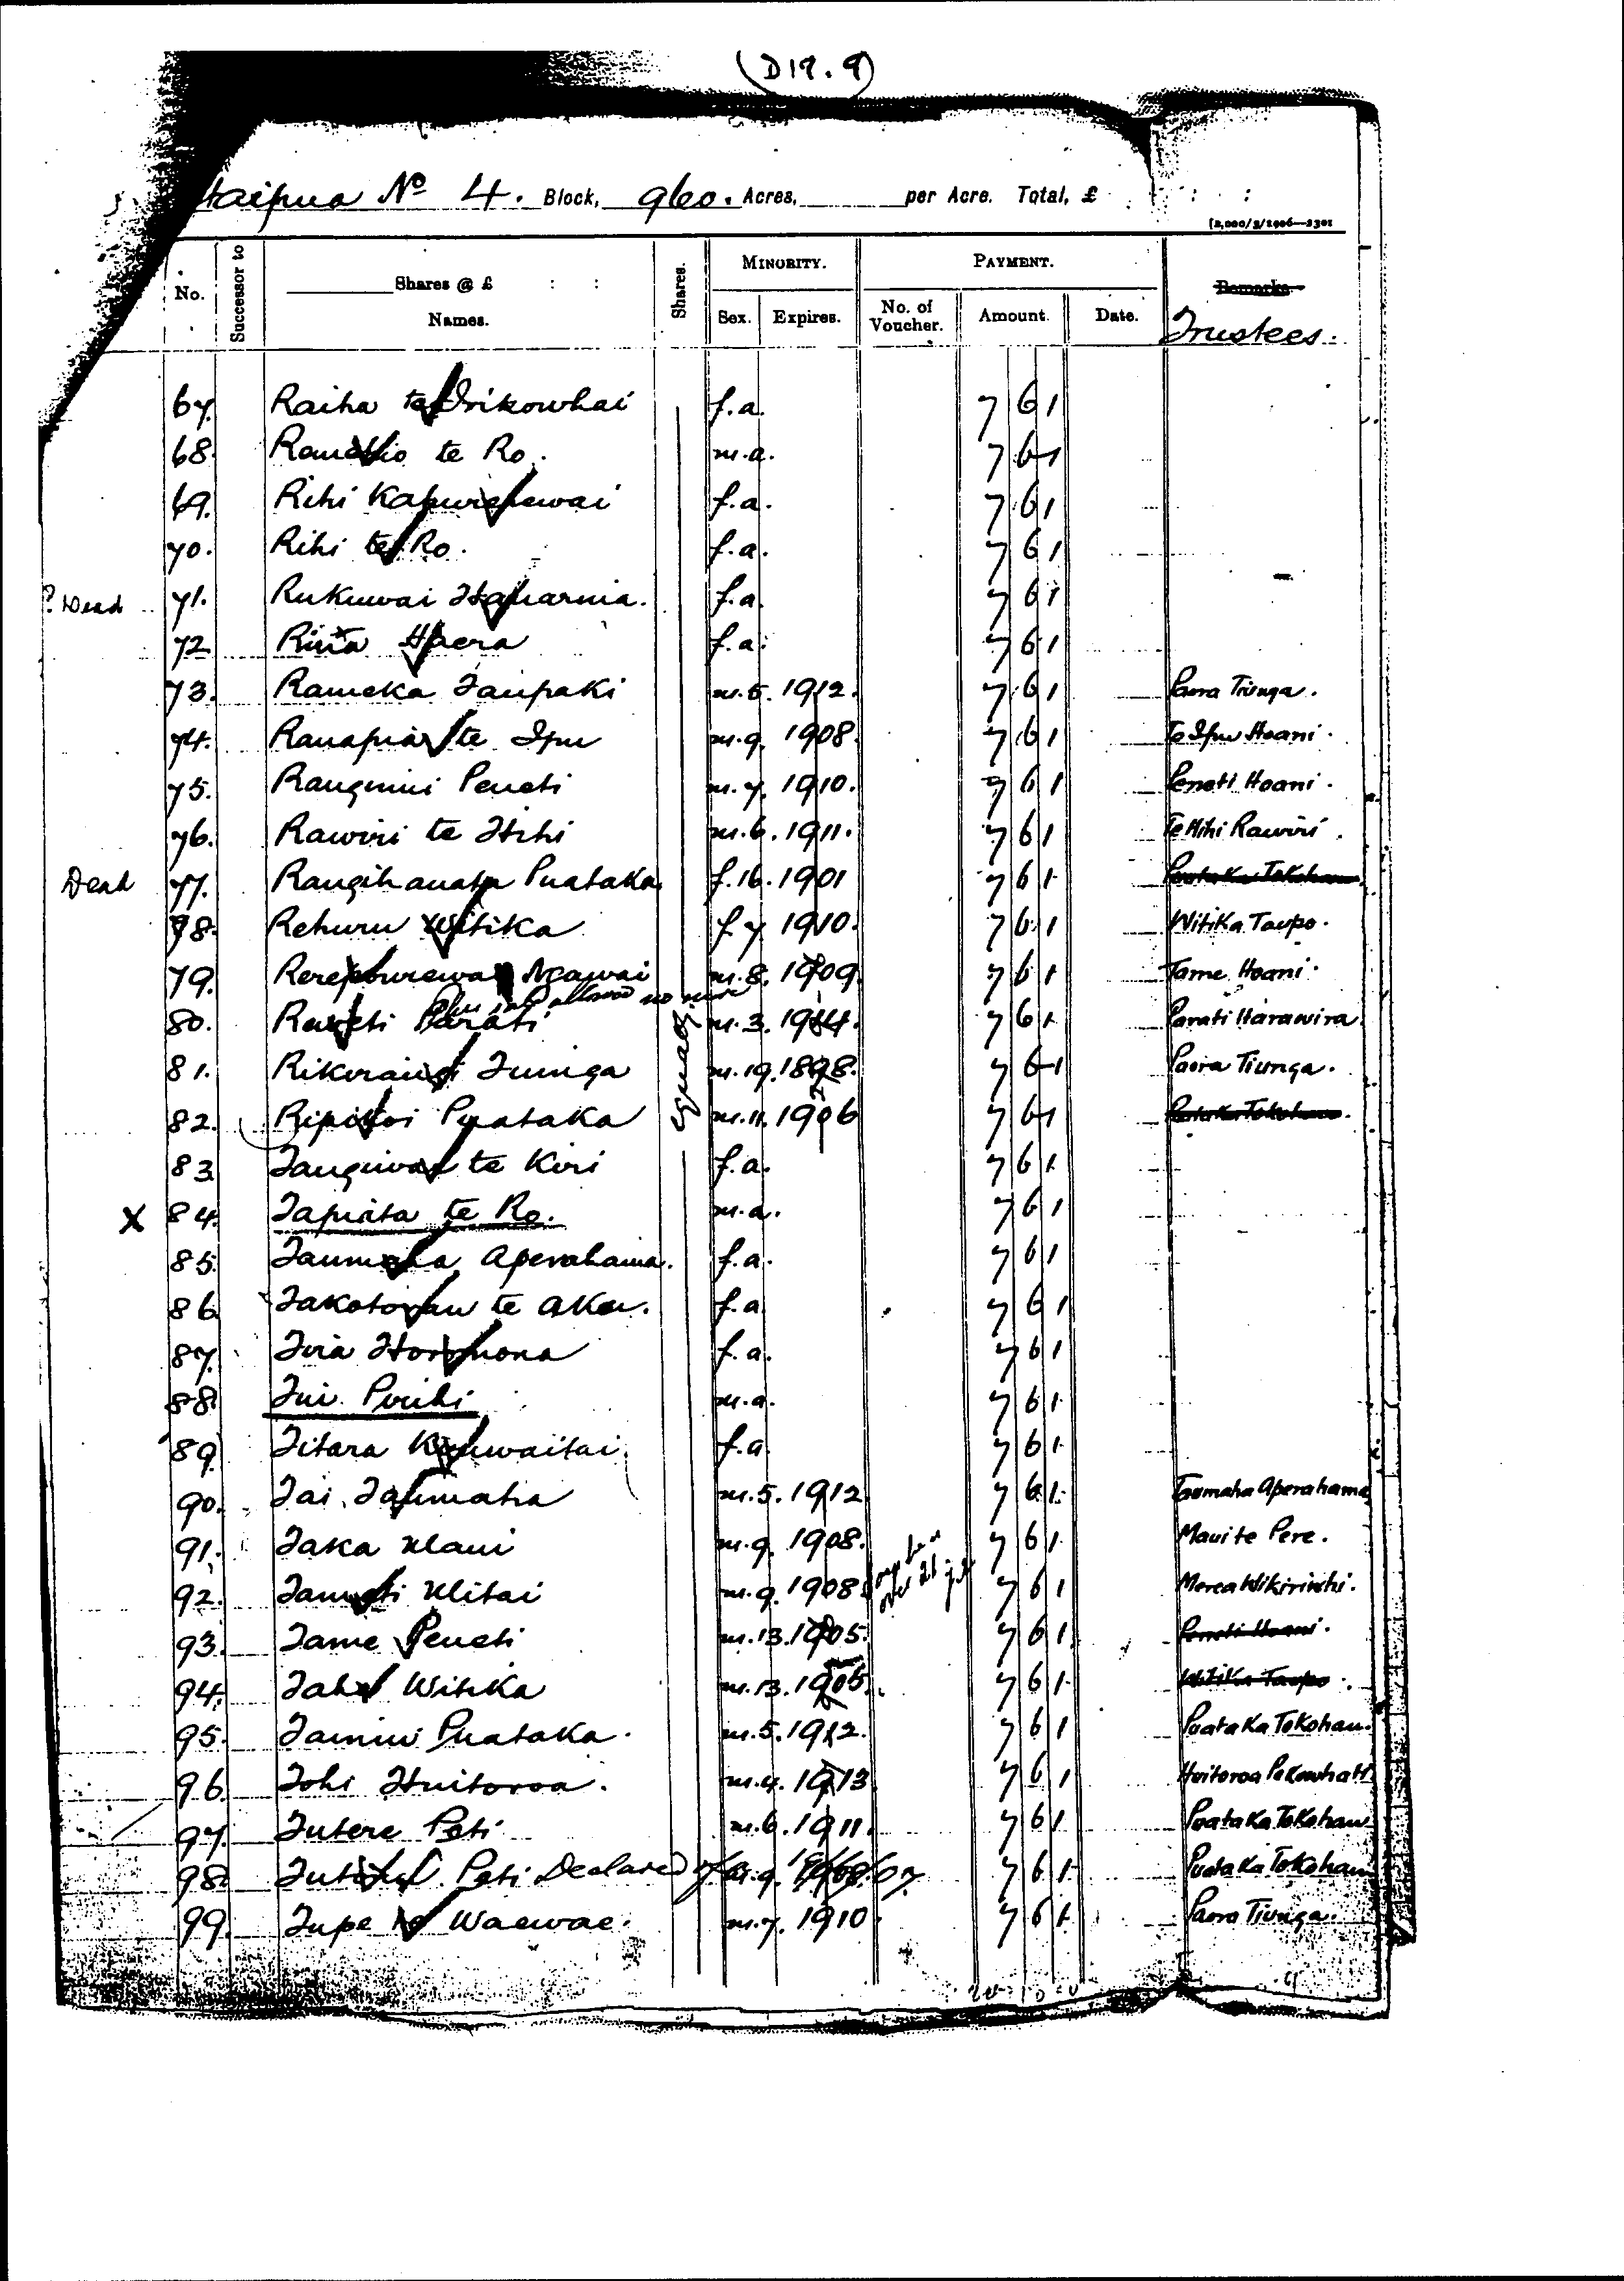 (D17.9)
taipua No 4. Block, 960. Acres, per Acre. Total, £ : :
[2,000/3/1906—2301
No. Successor to Shares @ £ : : Names. Shares. MINORITY. Sex. Expires. PAYMENT. No. of Voucher. Amount. Date. Remarks Trustees.
67. Raiha te Irikowhai f.a. 7 6 1
68. te Ro. m.a. 7 6 1
69. Rihi Kapurerewai f.a. 7 6 1
70. Rihi te Ro. f.a. 7 6 1
? Dead 71. Rukuwai Haharnia. f.a. 7 6 1
72. f.a. 7 6 1
73. Rameka Taupaki m.5. 1912. 7 6 1 Paora Tiunga.
74. Ranapia te Ipu m.9. 1908. 7 6 1 Te Ipu Hoani.
75. Rangunui Peneti m.7. 1910. 7 6 1 Peneti Hoani.
76. Rawiri te Hihi m.6. 1911. 7 6 1 Te Hihi Rawiri.
Dead 77. Rangihanata Puataka f.16. 1901 7 6 1 Puataka Tokohau
78. Rehuru Witika f.7. 1910. 7 6 1 Witika Taupo.
79. Ngawai m.8. 1909. 7 6 1 Tame Hoani.
allowed no more
80. Parati m.3. 7 6 1 Parati Harawira
81. Rikirangi Tiunga m.19. 1898. 7 6 1 Paora Tiunga.
82. Ripikoi Puataka m.11. 1906 7 6 1 Puataka Tokohau.
Equally
83. Tanguwai te Kiri f.a. 7 6 1
X 84. Tapiata te Ro. m.a. 7 6 1
85. Taumaha Aperahama. f.a. 7 6 1
86. Takotorau te Aka. f.a. 7 6 1
87. Tiria Horomona f.a. 7 6 1
88. Tui Pirihi m.a. 7 6 1
89. Titara Kahuwaitai. f.a. 7 6 1
90. Tai Taumaha m.5. 1912 7 6 1 Taumaha Aperahama
91. Taka Maui m.9. 1908. 7 6 1 Maui te Pere.
92. Tamati Mitai m.9. 1908 over 21 7 6 1 Merea Wikiriwhi.
93. Tame Peneti m.13. 1905. 7 6 1 Peneti Hoani.
94. Witika m.13. 1905. 7 6 1 Witika Taupo.
95. Tamiu Puataka. m.5. 1912. 7 6 1 Puataka Tokohau.
96. Tohi Huitoroa. m.4. 1913 7 6 1 Huitoroa Pekewhati
97. Tutere Peti m.6. 1911. 7 6 1 Puataka Tokohau
98. Peti Declared of m.9. 1908. 7 6 1 Puataka Tokohau
99. Tupe te Waewae. m.7. 1910. 7 6 1 Paora Tiunga.